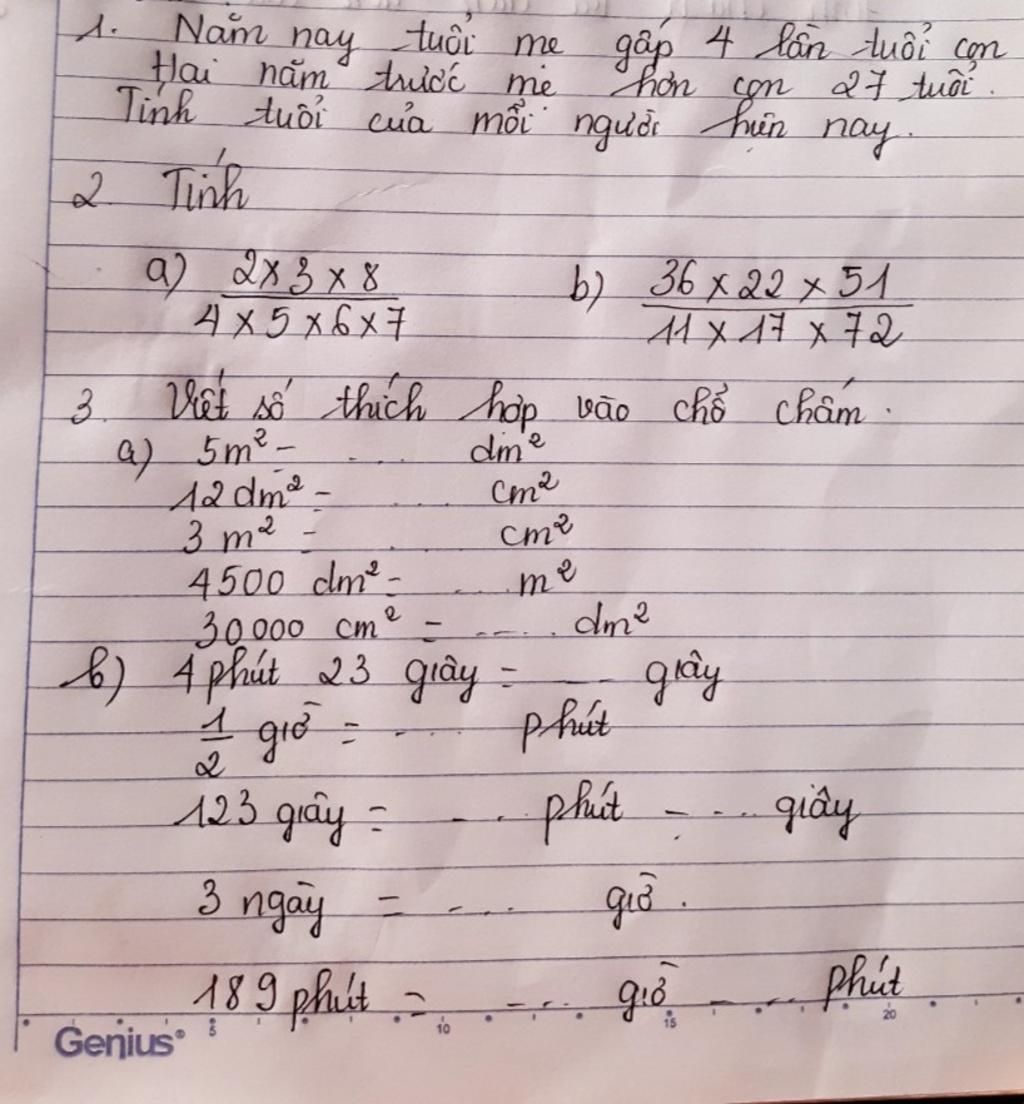 1. Năm nay tuổi mẹ gấp 4 lần tuổi con
Hai năm trước mẹ hơn con 27 tuổi.
Tính tuổi của mỗi người hiện nay.
2. Tính
a) 2 x 3 x 8 / 4 x 5 x 6 x 7 b) 36 x 22 x 51 / 11 x 17 x 72
3. Viết số thích hợp vào chổ chấm.
a) 5m² = .... dm²
12 dm² = .... cm²
3 m² = .... cm²
4500 dm² = .... m²
30000 cm² = ..... dm²
b) 4 phút 23 giây = .... giây
1/2 giờ = .... phút
123 giây = .... phút .... giây
3 ngày = .... giờ.
189 phút = .... giờ .... phút
Genius® 5 10 15 20